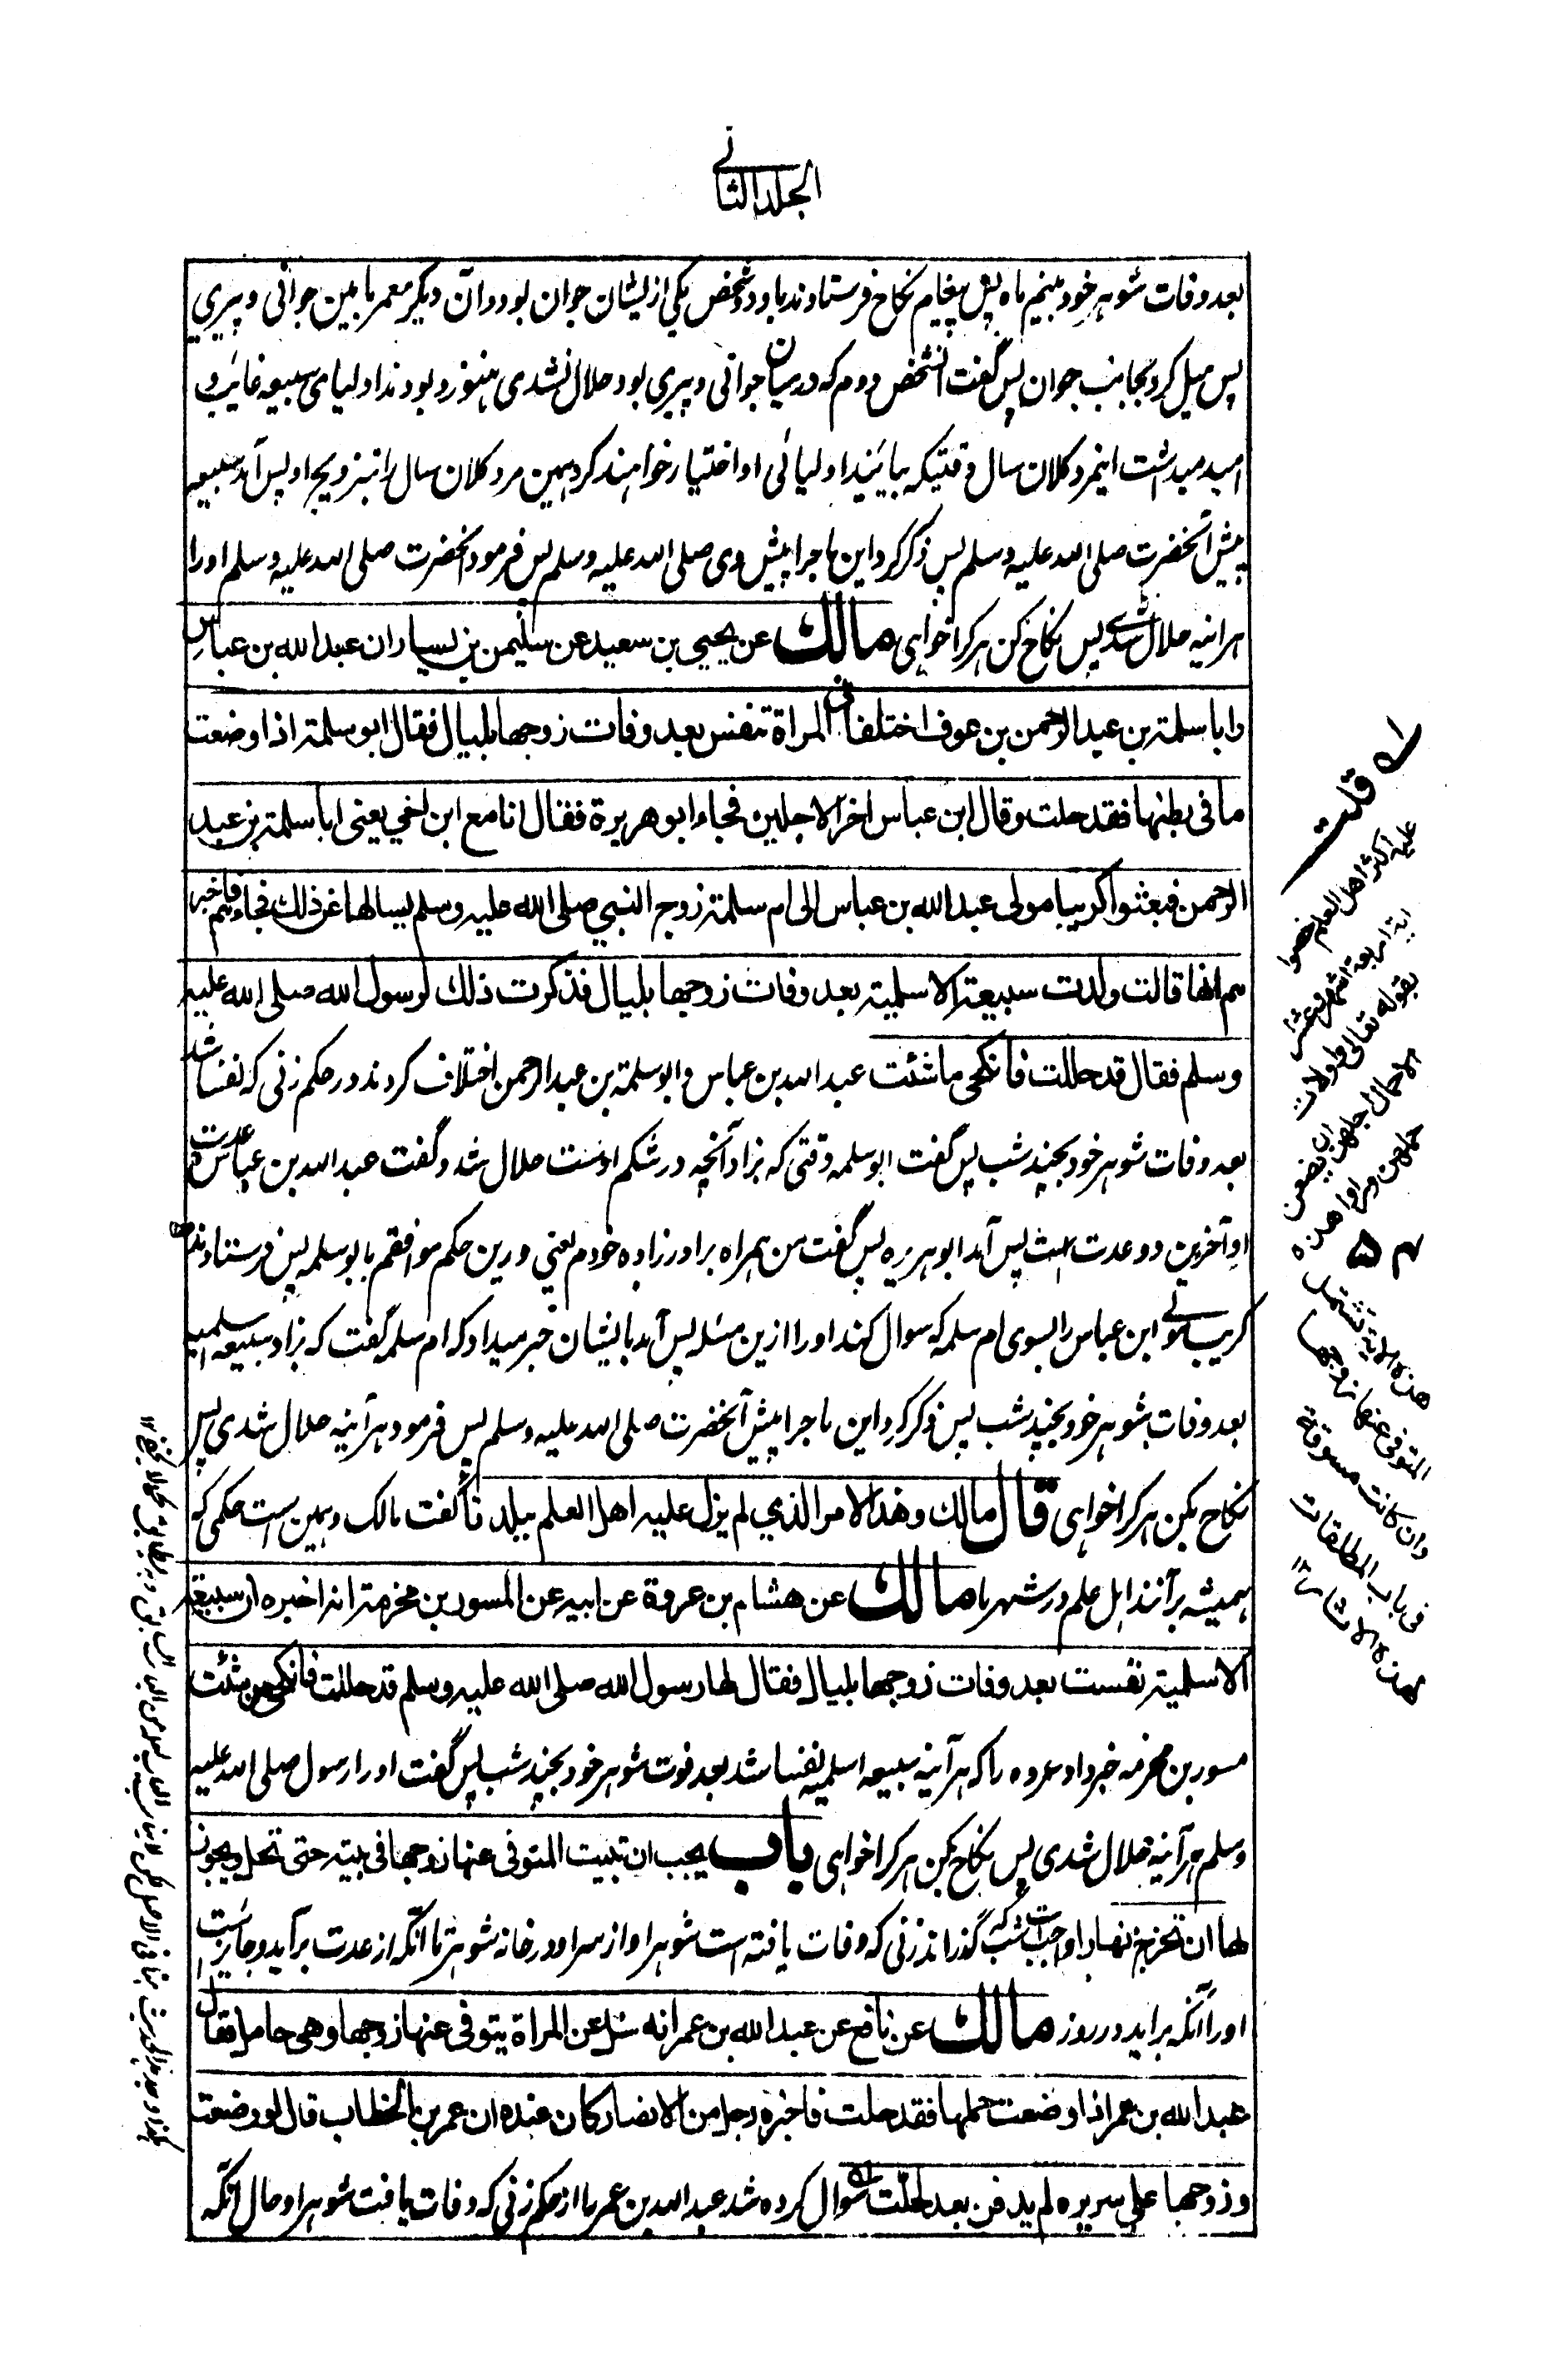 الجلد الثانی
بعد وفات شوهر خود بنیم ماه پس پیغام نکاح فرستادند باو دو شخص یکی از ایشان جوان بود و آن دیگر معمر ما بین جوانی و پیری
پس میل کرد بجانب جوان پس گفت آنشخص دوم که درمیان جوانی و پیری بود حلال نشدی هنوز و بودند اولیای سبیعه غایب و
امید میداشت اینمرد کلان سال وقتیکه بیایند اولیائی او اختیار خواهند کرد همین مرد کلان سال را بتزویج او پس آمد سبیعه
پیش آنحضرت صلی الله علیه وسلم پس ذکر کرد این ماجرا پیش وی صلی الله علیه وسلم پس فرمود آنحضرت صلی الله علیه وسلم او را
هرآئینه حلال شدی پس نکاح کن هر کرا خواهی مالك عن یحیی بن سعید عن سلیمن بن یسار ان عبد الله بن عباس
وابا سلمة بن عبد الرحمن بن عوف اختلفا فی المراة تنفس بعد وفات زوجها بلیال فقال ابو سلمة اذا وضعت
ما فی بطنها فقد حلت وقال ابن عباس اخر الاجلین فجاء ابو هریرة فقال انا مع ابن اخی یعنی ابا سلمة بن عبد
الرحمن فبعثوا کریبا مولی عبد الله بن عباس الی ام سلمة زوج النبی صلی الله علیه وسلم یسالها عن ذلك فجاءهم فاخبر
هم انها قالت ولدت سبیعة الاسلمیة بعد وفات زوجها بلیال فذکرت ذلك لرسول الله صلی الله علیه
وسلم فقال قد حللت فانکحی ما شئت عبد الله بن عباس وابو سلمة بن عبد الرحمن اختلاف کردند در حکم زنی که نفسا شد
بعد وفات شوهر خود بچند شب پس گفت ابو سلمه وقتی که بزاد آنچه در شکم اوست حلال شد و گفت عبد الله بن عباس عدت
او آخرین دو عدت است پس آمد ابو هریره پس گفت من همراه برادر زاده خودم یعنی درین حکم موافقم با ابو سلمه پس فرستادند
کریب مولی ابن عباس را بسوی ام سلمه که سوال کند او را ازین مسئله پس آمد با ایشان خبر میداد که ام سلمه گفت که بزاد سبیعه اسلمیه
بعد وفات شوهر خود بچند شب پس ذکر کرد این ماجرا پیش آنحضرت صلی الله علیه وسلم پس فرمود هرآئینه حلال شدی پس
نکاح بکن هر کرا خواهی قال مالك وهذا الامر الذی لم یزل علیه اهل العلم ببلدنا گفت مالک و همین است حکمی که
همیشه برآنند اهل علم در شهر ما مالك عن هشام بن عروة عن ابیه عن المسور بن مخرمة انه اخبره ان سبیعة
الاسلمیة نفست بعد وفات زوجها بلیال فقال لها رسول الله صلی الله علیه وسلم قد حللت فانکحی من شئت
مسور بن مخرمه خبر داد عروه را که هرآئینه سبیعه اسلمیه نفسا شد بعد فوت شوهر خود بچند شب پس گفت او را رسول صلی الله علیه
وسلم هرآئینه حلال شدی پس نکاح بکن هر کرا خواهی باب یجب ان تبیت المتوفی عنها زوجها فی بیته حتی تحل ویجوز
لها ان تخرج نهارا واجب است که شب گذراند زنی که وفات یافته است شوهر او از سر او در خانه شوهر تا آنکه از عدت برآید و جایز است
او را آنکه برآید در روز مالك عن نافع عن عبد الله بن عمر انه سئل عن المراة یتوفی عنها زوجها وهی حامل فقال
عبد الله بن عمر اذا وضعت حملها فقد حلت فاخبره رجل من الانصار کان عنده ان عمر بن الخطاب قال لو وضعت
وزوجها علی سریره لم یدفن بعد لحلت سوال کرده شد عبد الله بن عمر را از حکم زنی که وفات یافت شوهر او حال آنکه
قلت
علیه اکثر اهل العلم خصوا
ایة اربعة اشهر وعشرا
بقوله تعالی واولات
الاحمال اجلهن ان یضعن
حملهن وراوا هذه
هذه الایة تشتمل
المتوفی عنها زوجها
وان کانت مسوقة
فی باب المطلقات